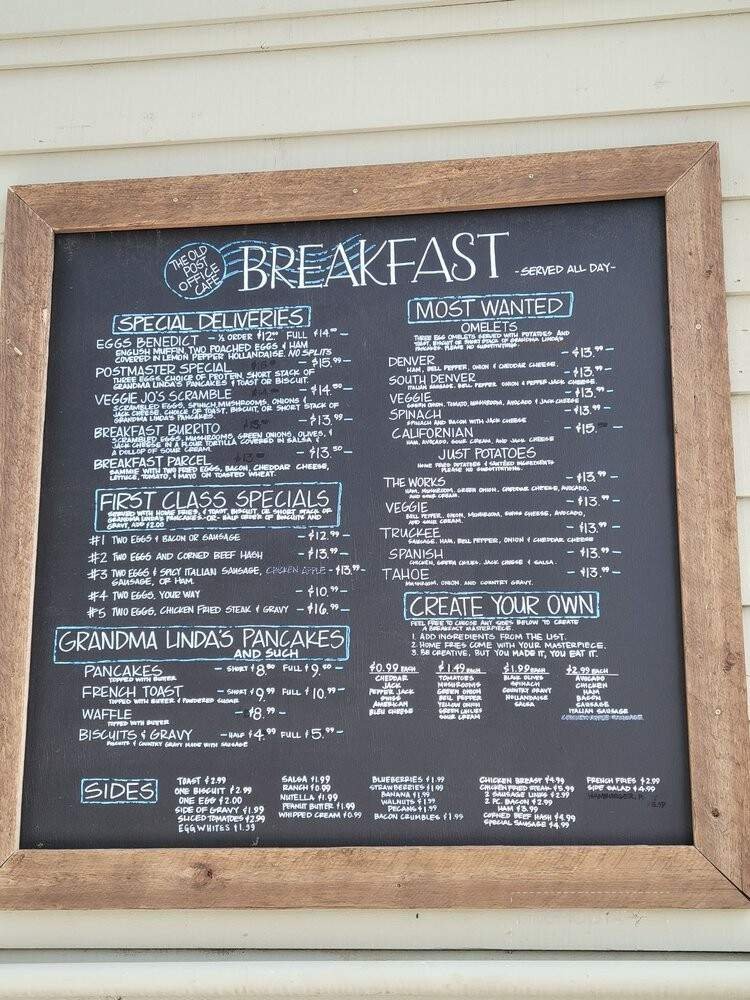 THE OLD
POST
OFFICE
CAFE
BREAKFAST
-SERVED ALL DAY-
SPECIAL DELIVERIES
EGGS BENEDICT - ½ ORDER $12.00 FULL $14.00 -
ENGLISH MUFFIN, TWO POACHED EGGS & HAM
COVERED IN LEMON PEPPER HOLLANDAISE. NO SPLITS
POSTMASTER SPECIAL - $15.99 -
THREE EGGS, CHOICE OF PROTEIN, SHORT STACK OF
GRANDMA LINDA'S PANCAKES & TOAST OR BISCUIT.
VEGGIE JO'S SCRAMBLE - $14.50 -
SCRAMBLED EGGS, SPINACH, MUSHROOMS, ONIONS &
JACK CHEESE, CHOICE OF TOAST, BISCUIT, OR SHORT STACK OF
GRANDMA LINDA'S PANCAKES.
BREAKFAST BURRITO - $13.99 -
SCRAMBLED EGGS, MUSHROOMS, GREEN ONIONS, OLIVES, &
JACK CHEESE IN A FLOUR TORTILLA COVERED IN SALSA &
A DOLLOP OF SOUR CREAM.
BREAKFAST PARCEL - $13.50 -
SAMMIE WITH TWO FRIED EGGS, BACON, CHEDDAR CHEESE,
LETTUCE, TOMATO, & MAYO ON TOASTED WHEAT.
FIRST CLASS SPECIALS
SERVED WITH HOME FRIES, & TOAST, BISCUIT OR SHORT STACK OF
GRANDMA LINDA'S PANCAKES -OR- HALF ORDER OF BISCUITS AND
GRAVY, ADD $2.00
#1 TWO EGGS & BACON OR SAUSAGE - $12.99 -
#2 TWO EGGS AND CORNED BEEF HASH - $13.99 -
#3 TWO EGGS & SPICY ITALIAN SAUSAGE, CHICKEN APPLE - $13.99 -
SAUSAGE, OR HAM.
#4 TWO EGGS, YOUR WAY - $10.99 -
#5 TWO EGGS, CHICKEN FRIED STEAK & GRAVY - $16.99 -
GRANDMA LINDA'S PANCAKES
AND SUCH
PANCAKES - SHORT $8.00 FULL $9.50 -
TOPPED WITH BUTTER
FRENCH TOAST - SHORT $9.99 FULL $10.99 -
TOPPED WITH BUTTER & POWDERED SUGAR
WAFFLE - $8.99 -
TOPPED WITH BUTTER
BISCUITS & GRAVY - HALF $4.99 FULL $5.99 -
BISCUITS & COUNTRY GRAVY MADE WITH SAUSAGE
MOST WANTED
OMELETS
THREE EGG OMELETS SERVED WITH POTATOES AND
TOAST, BISCUIT OR SHORT STACK OF GRANDMA LINDA'S
PANCAKES. PLEASE NO SUBSTITUTIONS.
DENVER - $13.99 -
HAM, BELL PEPPER, ONION & CHEDDAR CHEESE.
SOUTH DENVER - $13.99 -
ITALIAN SAUSAGE, BELL PEPPER, ONION & PEPPER JACK CHEESE.
VEGGIE - $13.99 -
GREEN ONION, TOMATO, MUSHROOM, AVOCADO & JACK CHEESE
SPINACH - $13.99 -
SPINACH AND BACON WITH JACK CHEESE
CALIFORNIAN - $15.
HAM, AVOCADO, SOUR CREAM, AND JACK CHEESE
JUST POTATOES
HOME FRIED POTATOES & SAUTÉED INGREDIENTS
PLEASE NO SUBSTITUTIONS
THE WORKS - $13.99 -
HAM, MUSHROOM, GREEN ONION, CHEDDAR CHEESE, AVOCADO,
AND SOUR CREAM.
VEGGIE - $13.99 -
BELL PEPPER, ONION, MUSHROOM, SWISS CHEESE, AVOCADO,
AND SOUR CREAM.
TRUCKEE - $13.99 -
SAUSAGE, HAM, BELL PEPPER, ONION & CHEDDAR CHEESE
SPANISH - $13.99 -
CHICKEN, GREEN CHILIES, JACK CHEESE & SALSA.
TAHOE - $13.99 -
MUSHROOM, ONION, AND COUNTRY GRAVY.
CREATE YOUR OWN
FEEL FREE TO CHOOSE ANY SIDES BELOW TO CREATE
A BREAKFAST MASTERPIECE.
1. ADD INGREDIENTS FROM THE LIST.
2. HOME FRIES COME WITH YOUR MASTERPIECE.
3. BE CREATIVE, BUT YOU MADE IT, YOU EAT IT.
$0.99 EACH
CHEDDAR
JACK
PEPPER JACK
SWISS
AMERICAN
BLEU CHEESE
$1.49 EACH
TOMATOES
MUSHROOMS
GREEN ONION
BELL PEPPER
YELLOW ONION
GREEN CHILIES
SOUR CREAM
$1.99 EACH
BLACK OLIVES
SPINACH
COUNTRY GRAVY
HOLLANDAISE
SALSA
$2.99 EACH
AVOCADO
CHICKEN
HAM
BACON
SAUSAGE
ITALIAN SAUSAGE
CHICKEN APPLE SAUSAGE
SIDES
TOAST $2.99
ONE BISCUIT $2.99
ONE EGG $2.00
SIDE OF GRAVY $1.99
SLICED TOMATOES $2.99
EGG WHITES $1.99
SALSA $1.99
RANCH $0.99
NUTELLA $1.99
PEANUT BUTTER $1.99
WHIPPED CREAM $0.99
BLUEBERRIES $1.99
STRAWBERRIES $1.99
BANANA $1.99
WALNUTS $1.99
PECANS $1.99
BACON CRUMBLES $1.99
CHICKEN BREAST $4.99
CHICKEN FRIED STEAK $5.99
2 SAUSAGE LINKS $2.99
2 PC. BACON $2.99
HAM $3.99
CORNED BEEF HASH $4.99
SPECIAL SAUSAGE $4.99
FRENCH FRIES $2.99
SIDE SALAD $4.99